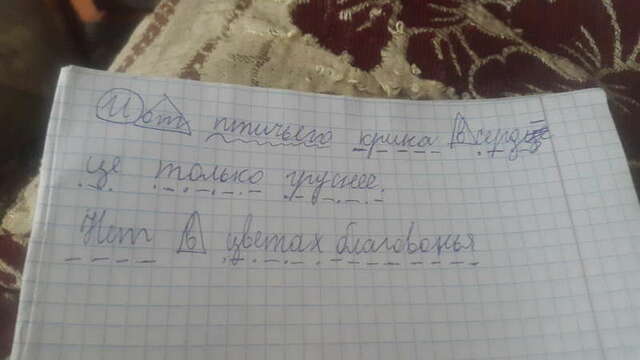 И от птичьего крика в серд
це только грустнее.
Нет в цветах благовонья